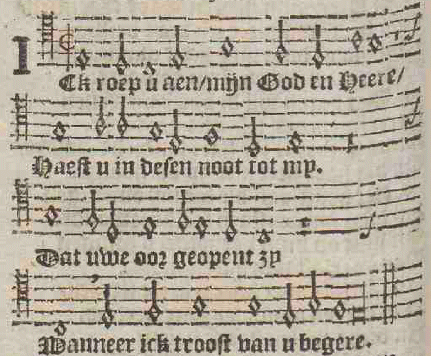 ICk roep u aen/mijn God en Heere/
Haest u in desen noot tot my.
Dat uwe oor geopent zy
Wanneer ick troost van u begere.